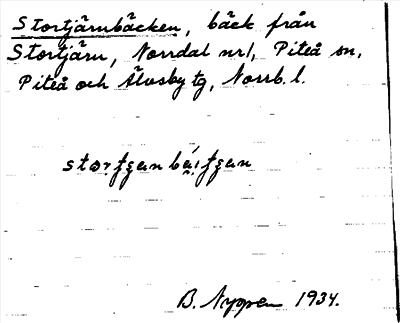 Stortjärnbäcken, bäck från
Stortjärn, Norrdal nr 1, Piteå sn,
Piteå och Älvsby tg, Norrb. l.
B. Nyppen 1934.